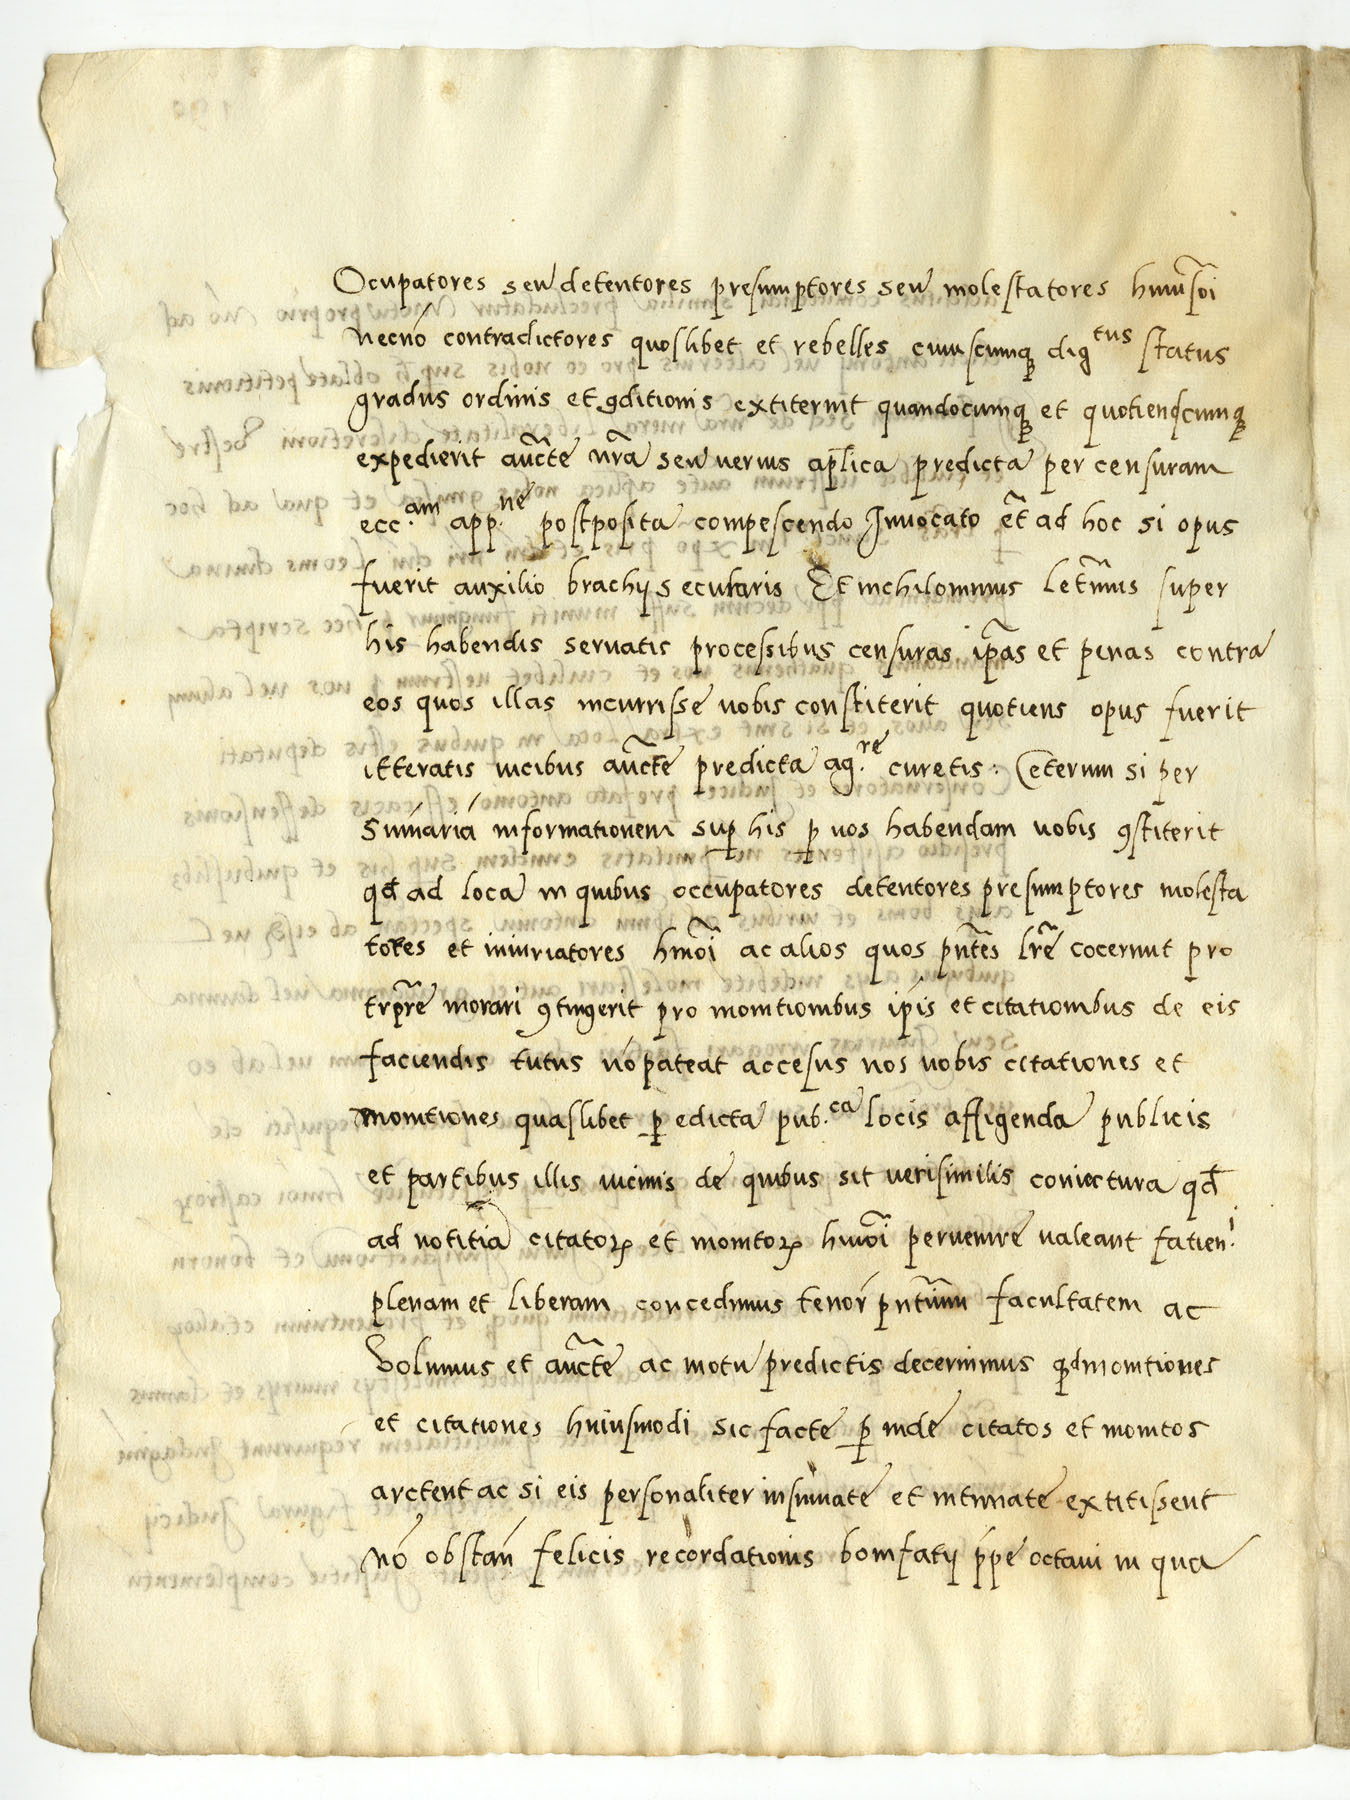 Ocupatores seu detentores presumptores seu molestatores hmūsōi
necnō contradictores quoslibet et rebelles cuiuscumqȝ dig^tus status
gradus ordinis et ꝯditionis extiterint quandocumqȝ et quotienscumqȝ
expedierit auc̄te nr̄a seu uerius ap̄lica predicta per censuram
ecc.^am app.^ne postposita compescendo Inuocato et̄ ad hoc si opus
fuerit auxilio brachij secularis Et nichilominus let̄mus super
his habendis seruatis processibus censuras ip̄as et penas contra
eos quos illas incurrisse uobis constiterit quotiens opus fuerit
itteratis uicibus auc̄te predicta ag.^re curetis: Ceterum si per
Sum̄ariā informationem suꝑ his ꝑ uos habendam uobis ꝯstiterit
qđ ad loca in quibus occupatores detentores presumptores molesta
tores et iniuriatores hmōi ac alios quos pn̄tes lr̄e cōcernut pro
tp̄re morari ꝯtingerit pro monitionibus ip̄is et citationibus de eis
faciendis tutus nō pateat accesus nos uobis citationes et
monitiones quaslibet ꝑ edicta pub.^ca locis affigenda publicis
et partibus illis uicinis de quibus sit uerisimilis coniectura qđ
ad notitiā citatoꝝ et monitoꝝ hmōi peruenire ualeant fatien.^i
plenam et liberam concedimus tenor̄ pn̄tium facultatem ac
Volumus et auc̄te ac motu predictis decernimus qđ monitiones
et citationes huiusmodi sic facte ꝑinde citatos et monitos
arctent ac si eis personaliter insinuate et intimate extitissent
nō obstan̄ felicis recordationis bonifatij pp̄e octaui in qua